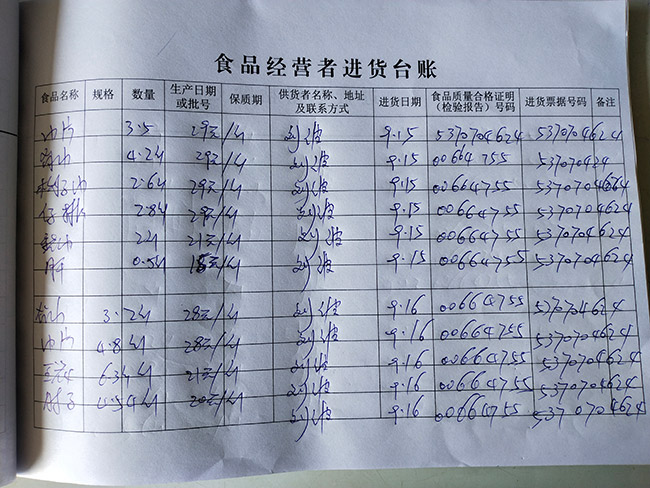 食品经营者进货台账
食品名称 规格 数量 生产日期或批号 保质期 供货者名称、地址及联系方式 进货日期 食品质量合格证明（检验报告）号码 进货票据号码 备注
肉片 3.5 29元/斤 刘波 9.15 5370704624 5370704624
4.2斤 29元/斤 刘波 9.15 00664755 53707424
2.6斤 29元/斤 刘波 9.15 00664755 5370704664
仔排 2.8斤 29元/斤 刘波 9.15 00664755 5370704624
2斤 21元/斤 刘波 9.15 00664755 5370704624
肝 0.5斤 15元/斤 刘波 9.15 00664755 5370704624
3.2斤 28元/斤 刘波 9.16 00664755 5370704624
肉片 4.8斤 28元/斤 刘波 9.16 00664755 5370704624
6.3斤 21元/斤 刘波 9.16 00664755 5370704624
肚子 20元/斤 刘波 9.16 00664755 5370704624
刘波 9.16 00664755 5370704624